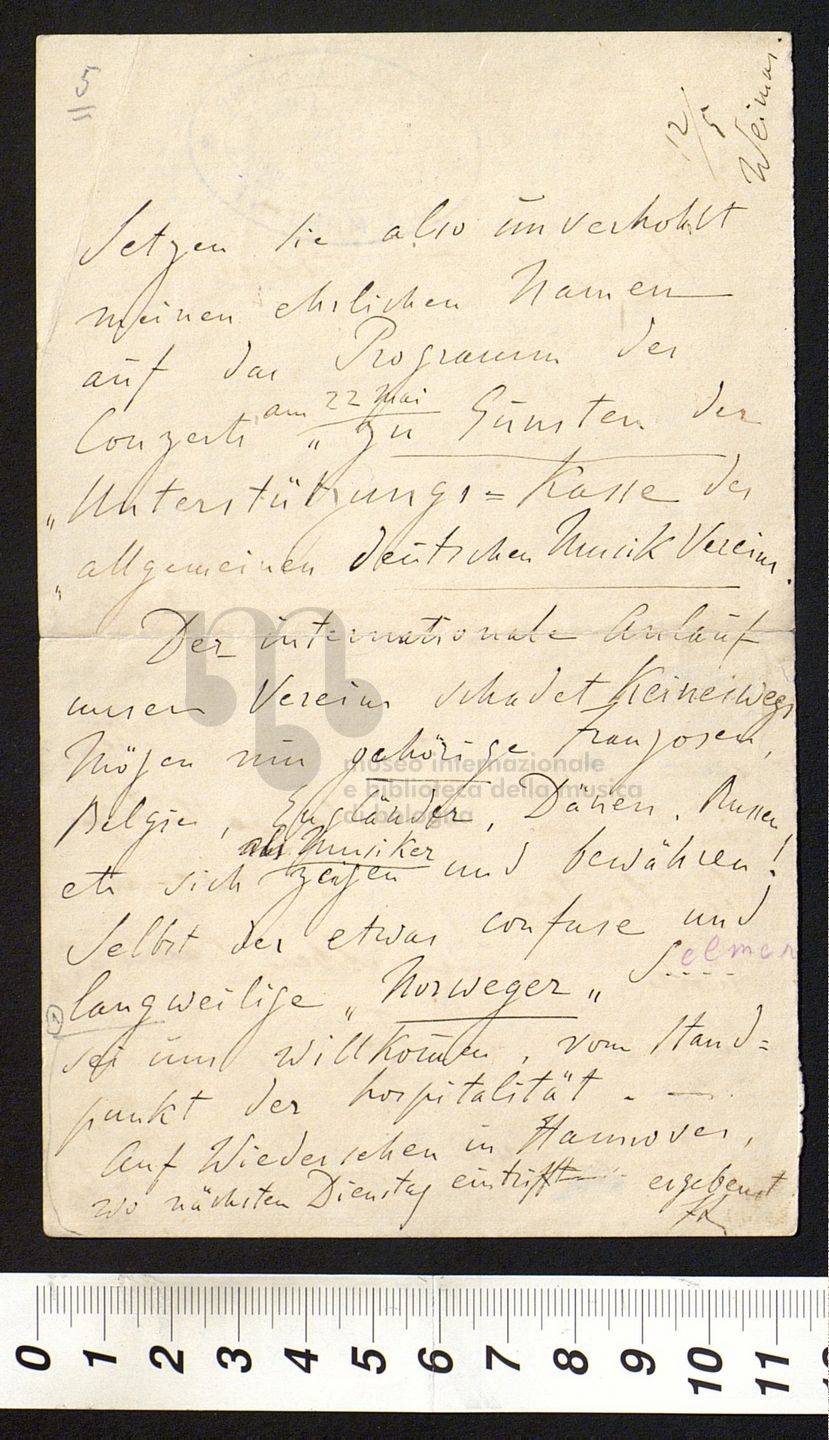 12/5
Weimar.
Setzen Sie also unverhohlt
meinen ehrlichen Namen
auf das Programm des
Conzerts am 22 Mai „zu Gunsten der
„Unterstützungs=Kasse des
„allgemeinen deutschen Musik Vereins.
Der internationale Anlauf
unsers Vereins schadet keineswegs
Mögen nur gehörige Franzosen,
Belgier, Engländer, Dänen, Russen,
etc sich als Musiker zeigen und bewähren!
Selbst der etwas confuse und
langweilige „Norweger„ S....elmer
sei uns willkommen, vom Stand=
punkt der Hospitalität. —
Auf Wiedersehen in Hannover,
wo nächsten Dienstag eintrifft ergebenst
museo internazionale
e biblioteca della musica
di bologna
0 1 2 3 4 5 6 7 8 9 10 11